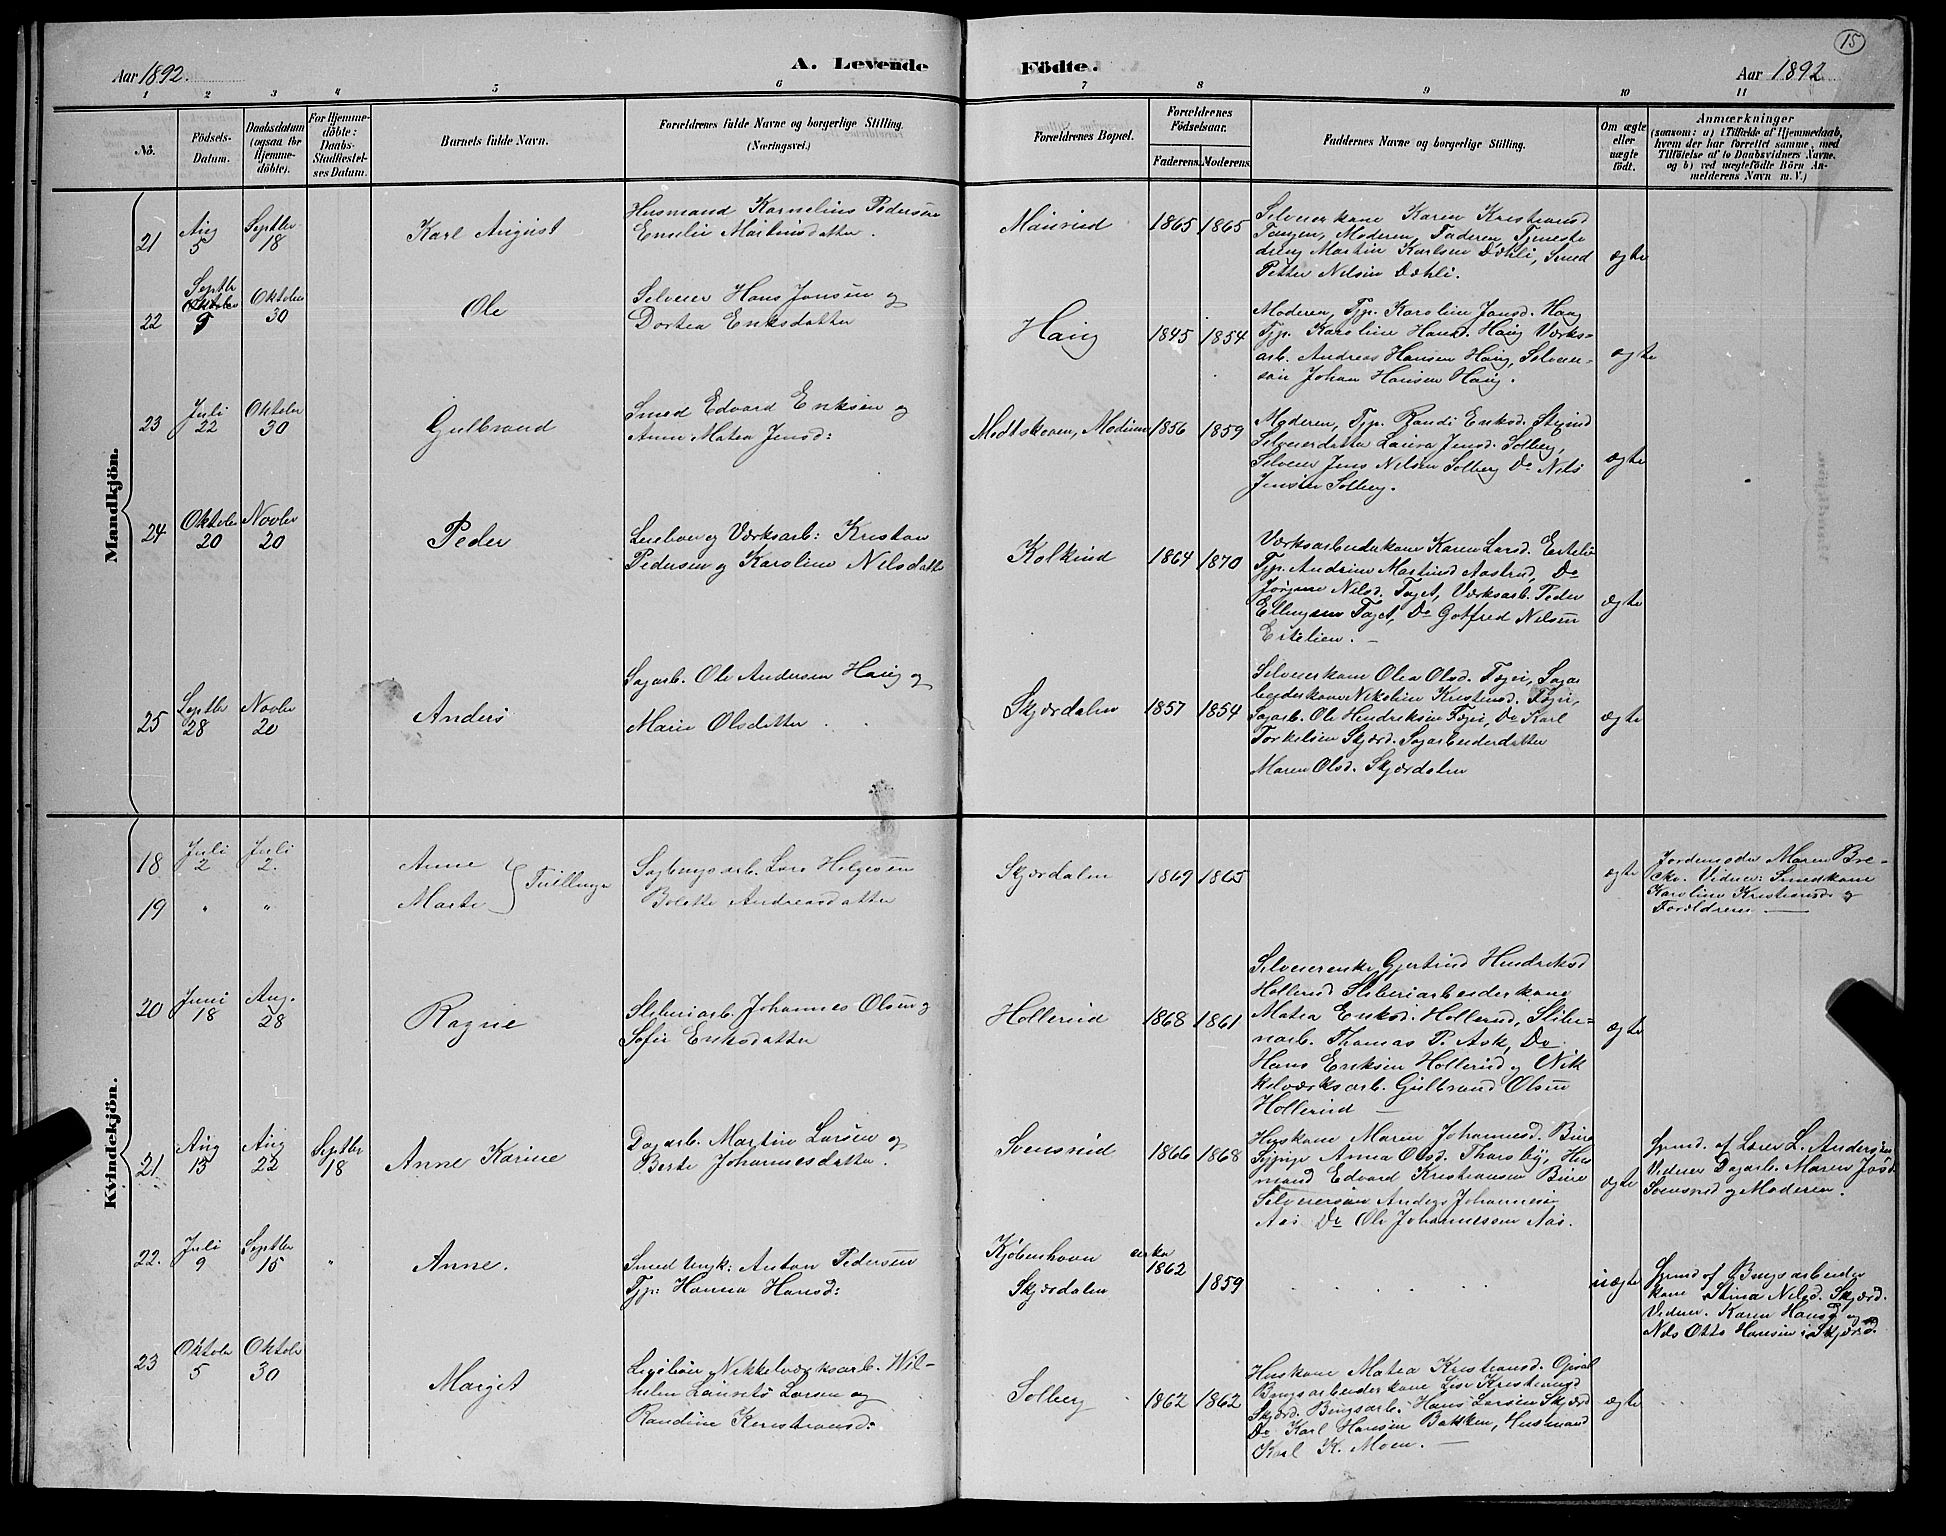 15
Aar 1892.
A. Levende Födte.
Aar 1892
1 2 3 4 5 6 7 8 9 10 11
No.
Födsels-
Datum.
Daabsdatum
(ogsaa for
Hjemme-
döbte).
For Hjemme-
döbte:
Daabs-
Stadfæstel-
ses Datum.
Barnets fulde Navn.
Forældrenes fulde Navne og borgerlige Stilling.
(Næringsvei.)
Forældrenes Bopæl.
Forældrenes
Födselsaar.
Faderens. Moderens.
Faddernes Navne og borgerlige Stilling.
Om ægte
eller
uægte
födt.
Anmærkninger
(saasom: a) i Tilfælde af Hjemmedaab,
hvem der har forrettet samme, med
Tilföielse af to Daabsvidners Navne.
og b) ved uægtefödte Börn An-
melderens Navn m. V.)
Mandkjön.
21
Aug
5
Septbr
18
Karl August
Husmand Kornelius Pedersen
Emelie Martinsdatter.
1865 1865
Selveierkone Karen Kristiansd
Tangen, Moderen, Faderen, Tjeneste
dreng Martin Karlsen Dæhli, Smed
Petter Nilsen Dæhli.
ægte
22
Septbr
Oktober
9
Oktober
30
Ole
Selveier Hans Jonsen og
Dortea Eriksdatter
Haug
1845 1854
Moderen, Tjp. Karoline Jonsd. Haug
Tjp. Karoline Hansd. Haug Værks-
arb. Andreas Hansen Haug, Selveier-
søn Johan Hansen Haug.
ægte
23
Juli
22
Oktober
30
Gulbrand
Smed Edvard Eriksen og
Anne Matea Jensd:
Modtskoven, Modum
1856 1859
Moderen, Tjp. Randi Eriksd.
Selveierdatter Laura Jensd. Solberg,
Selveier Jens Nilsen Solberg Do Nils
Jensen Solberg.
ægte
24
Oktober
20
Novbr
20
Peder
Leiebo og Værksarb: Kristian
Pedersen og Karoline Nilsdatter
Kolkind
1864 1870
Værksarbeiderkone Karen Larsd. Ertelie
Tjp. Andrine Martinsd Aastrud, Do
Jørgine Nilsd. Faget, Værksarb. Peder
Ellingsen Faget, Do Gotfred Nilsen
Ertelien. —
ægte
25
Septbr
28
Novbr
20
Anders
Sagarb. Ole Andersen Haug og
Marie Olsdatter
Skjærdalen
1857 1854
Selveierkone Olea Olsd. Fogn, Saga
beiderkone Nikoline Kristensd.
Sagarb. Ole Hendriksen Do Karl
Torkelsen Skjærd. Sagarbeiderdatter
Maren Olsd. Skjærdalen
ægte
Kvindekjön.
18
Juli
2
Juli
2.
Anne
19
" "
Marte
Tvillinge
Sagbrugsarb. Lars Helgesen
Bolette Andreasdatter
Skjærdalen
1869 1865
ægte
Jordemoder Maren Bre-
cke. Vidner: Smedkone
Karoline Kristiansd og
Forældrene —
20
Juni
18
Aug.
28
Ragne
Sliberiarb. Johannes Olsen og
Sofie Eriksdatter
Hollerud
1868 1861
Selveierenke Gjertrud Hendriksd
Hollerud Sliberiarbeiderkone
Matea Eriksd. Hollerud, Slibe-
riarb. Thomas P. Ask, Do
Hans Eriksen Hollerud og Nik
kelværksarb. Gulbrand Olsen
Hollerud —
ægte
21
Aug
13
Aug
22
Septbr
18
Anne Karine
Dagarb. Martin Larsen og
Berte Johannesdatter.
Svensrud
1866 1868
Huskone Maren Johannesd. Bure
Tjpige Anna Olsd. Thorsby, Hus
mand Edvard Kristiansen Bure
Selveiersøn Anders Johannesen
Aas Do Ole Johannessen Aas.
ægte
Hjmd. af Lærer L. Andersen
Vidner Dagarb. Maren
Svensrud og Moderen.
22.
Juli
9
Septbr
15
"
Anne.
Smed Ungk: Anton Pedersen
Tjp: Hanna Hansd:
Kjøbenhavn
Skjærdalen
cirka
1862
1859
uægte
Hjmd af Brugsarbeider
kone Stina Nilsd. Skjærd.
Vidner. Karen Hansd og
Nils Otto Hansen i Skjærd.
23
Oktober
5
Oktober
30
Margit
Nikkelværksarb. Wil-
helm Lauritz Larsen og
Randine Kristiansd:
Solberg
1862 1862
Huskone Matea Kristiansd.
Brugsarbeiderkone Lise Kristiansd
Skjærd. Brugsarb. Hans Larsen Skjærd
Do Karl Hansen Bakken, Husmand
Karl K. Moen. —
ægte